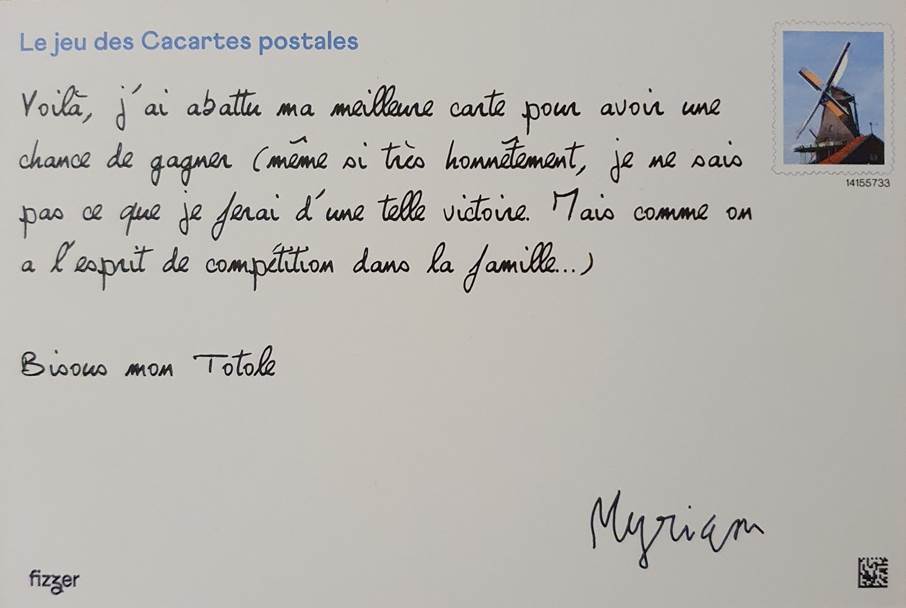 Le jeu des Cacartes postales
14155733
Voilà, j'ai abattu ma meilleure carte pour avoir une
chance de gagner (même si très honnêtement, je ne sais
pas ce que je ferai d'une telle victoire. Mais comme on
a l'esprit de compétition dans la famille...)
Bisous mon Totole
Myriam
fizzer